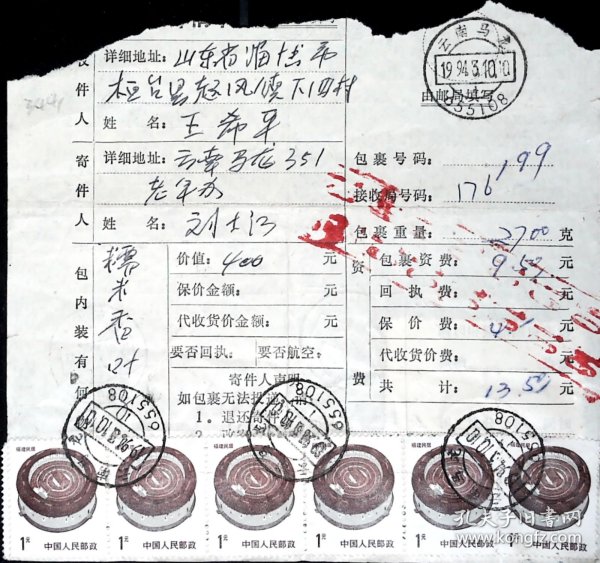 详细地址：山东省淄博市
桓台县起凤镇下四村
件
人 姓 名：王希平
寄 详细地址：云南马龙351
件 老军办
人 姓 名：刘士江
云南马龙
1994.3.10.10
655108
由邮局填写
包裹号码：199
接收局号码：176
包裹重量：2700 克
资 包裹资费：9.50 元
回执费： 元
保价费：4 元
代收货价费： 元
费 共 计：13.50 元
包内装有何
价值：400 元
保价金额： 元
代收货价金额： 元
要否回执： 要否航空：
寄件人声明
如包裹无法投递
1。退还寄件
2。
655108
655108
655108
福建民居
福建民居
福建民居
福建民居
福建民居
1元 中国人民邮政
1元 中国人民邮政
1元 中国人民邮政
1元 中国人民邮政
1元 中国人民邮政
1元 中国人民邮政
孔夫子旧书网
kongfz.com